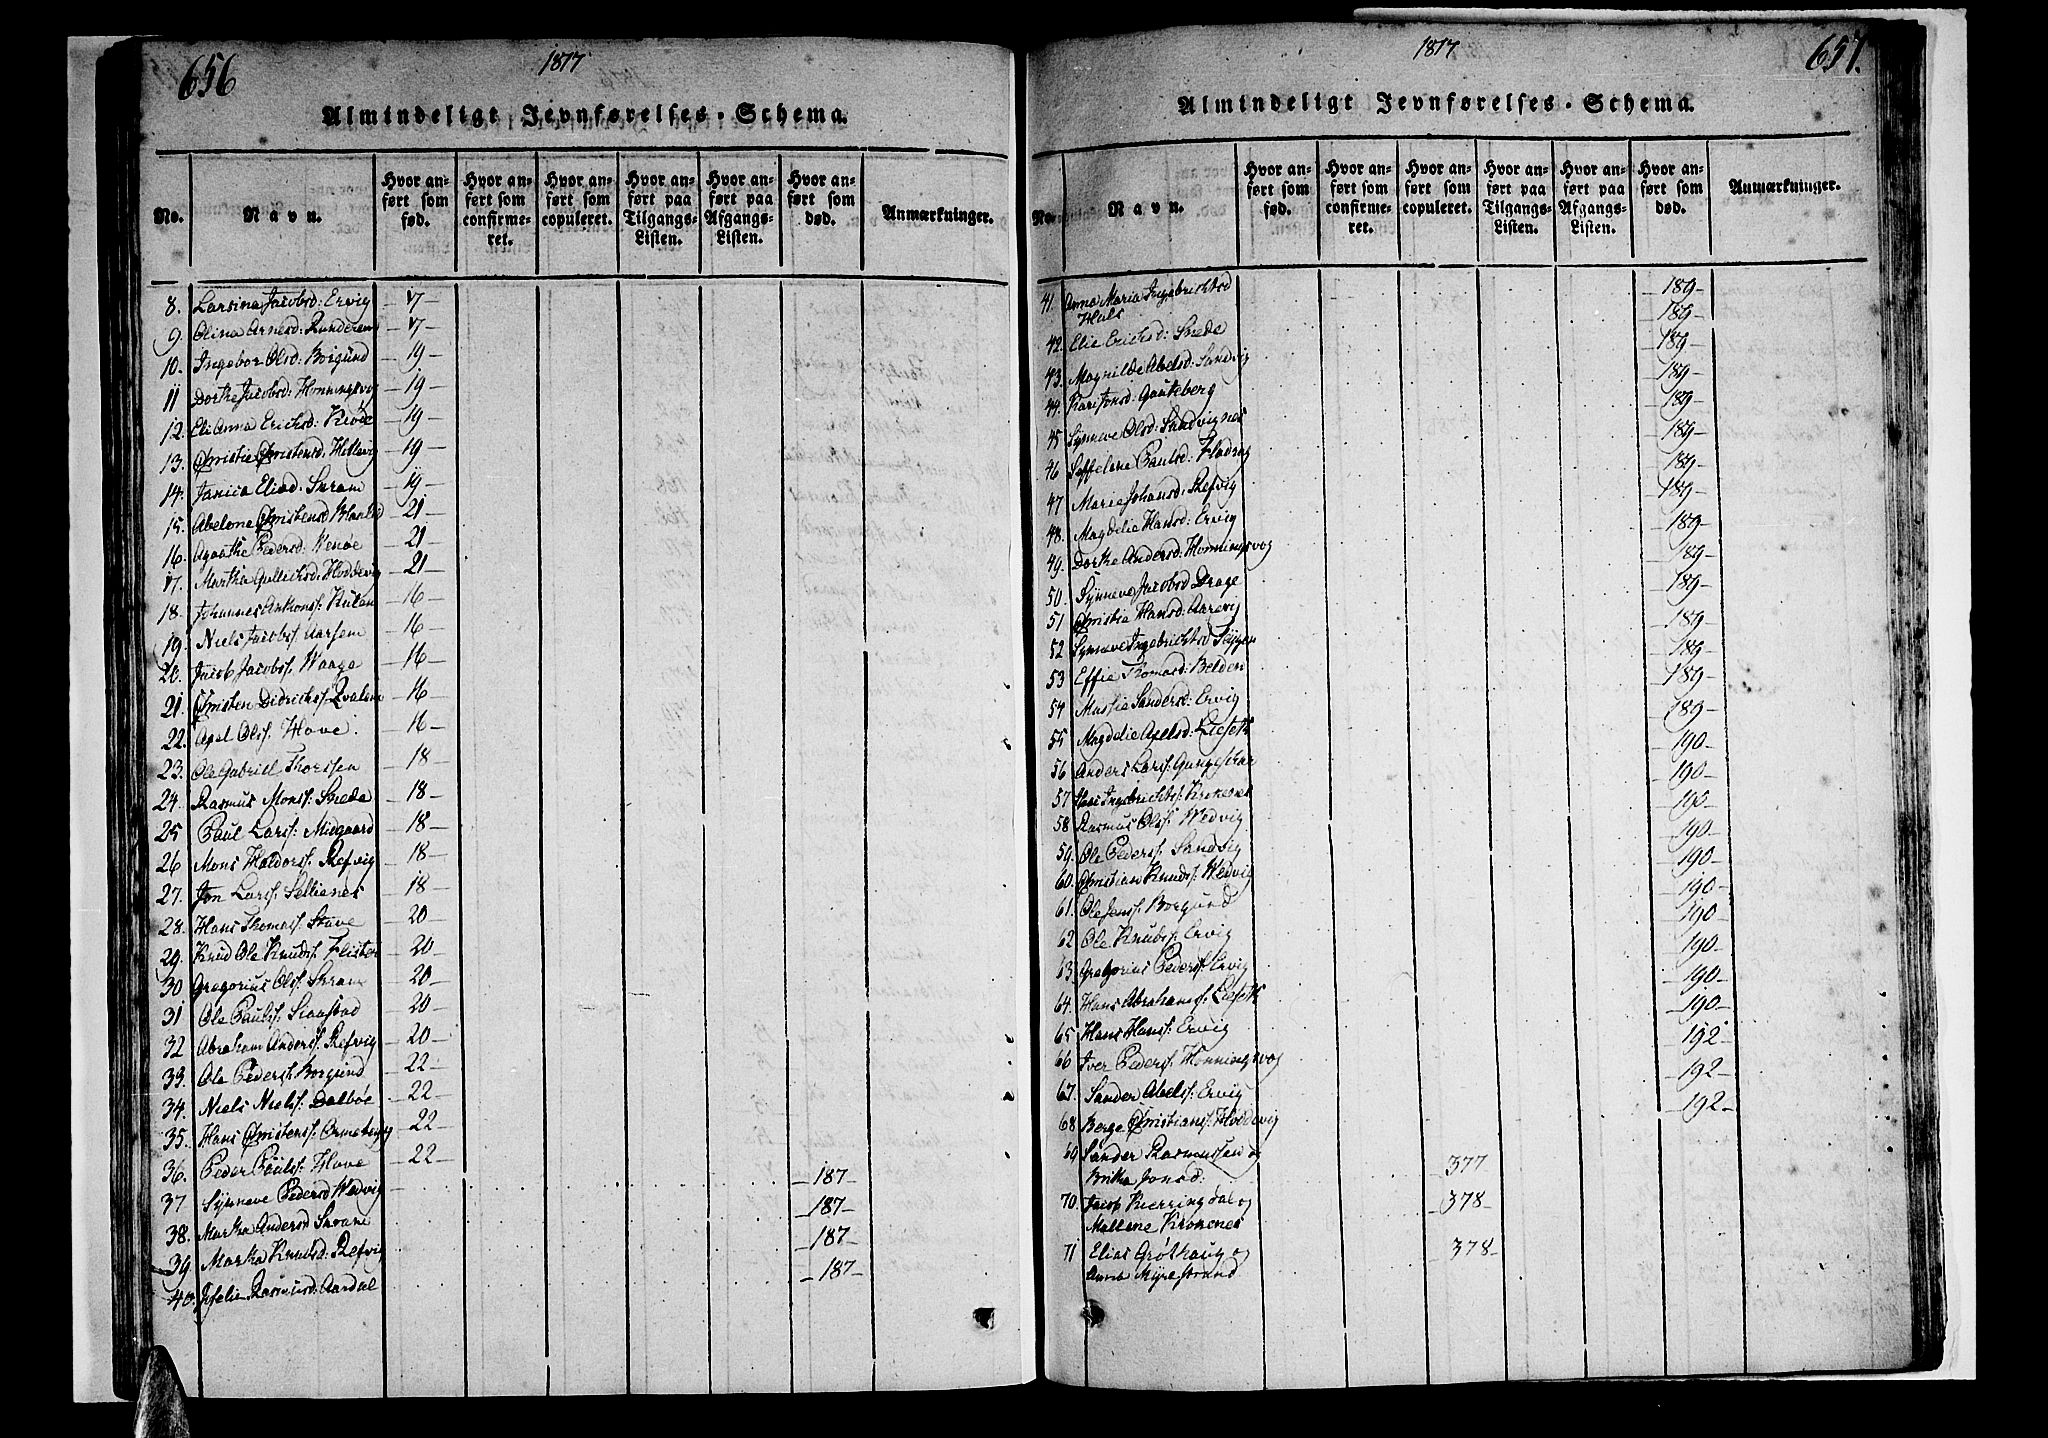 656
1817
Almindeligt Jevnførelses-Schema.
No.
Navn.
Hvor anført som fød.
Hvor anført som confirmeret.
Hvor anført som copuleret.
Hvor anført paa Tilgangs-Listen.
Hvor anført paa Afgangs-Listen.
Hvor anført som død.
Anmærkninger.
8. Larsina Jacobsd: Ervig - 7 -
9. Olina Arnesd: Runderem - 7 -
10. Ingebor Olsd: Borgund - 19 -
11 Dorthe Jacobsd: Honningsvog - 19 -
12. Eli Anna Erichsd: - 19 -
13. Christie Christensd: Hillevig - 19 -
14. Janica Eliasd: - 19 -
15. Abelone Christensd - 21 -
16. Agaathe Pedersd: - 21 -
17. Martha Gullichsd: Hoddevig - 21 -
18. Johannes - 16 -
19. Niels Jacobs: Aarsem - 16 -
20. Jacob Jacobs: Waage - 16 -
21. Christen Didrichs: - 16 -
22. Axel Ols: Hove. - 16 -
23. Ole Gabriel Thorsen - 18 -
24. Rasmus Mons: - 18 -
25 Paul Lars: Miegaard - 18 -
26 Mons Haldors: Refvig - 18 -
27. Jon Lars: Sellienes - 18 -
28. Hans Thomas: Stave - 20 -
29. Knud Ole Knuds: - 20 -
30 Gregorius Ols: - 20 -
31 Ole Pauls: - 20 -
32 Abraham Anders: Refvig - 20 -
33. Ole Peders: Borgund - 22 -
34. Niels Niels: Dalbøe - 22 -
35. Hans Christens: - 22 -
36. Peder Pauls: Hove - 22 -
37 Synneve Pedersd Wedvig - 187 -
38. Martha Andersd - 187 -
39. Martha Knudsd: Refvig - 187 -
40. Rasmusd: Aardal - 187 -
1817
657.
Almindeligt Jevnførelses-Schema.
No.
Navn.
Hvor anført som fød.
Hvor anført som confirmeret.
Hvor anført som copuleret.
Hvor anført paa Tilgangs-Listen.
Hvor anført paa Afgangs-Listen.
Hvor anført som død.
Anmærkninger.
41. Anna Maria Ingebrichtsd - 189 -
42. Elie Erichsd: - 189 -
43. Magnilde Abelsd: Sandvig - 189 -
44. Kari Jonsd: - 189 -
45 Synneve Olsd: Sandvignes - 189 -
46 Paulsd: - 189 -
47 Marie Johansd: Refvig - 189 -
48. Magdelie Hansd: Ervig - 189 -
49. Dorthe Andersd: Honningsvog - 189 -
50. Synneve Jacobsd Drage - 189 -
51 Christie Hansd: Aarevig - 189 -
52 Synneve Ingebrichtsd - 189 -
53 Effie Thomasd: - 189 -
54 Sandersd: Ervig - 189 -
55 Magdelie Axelsd: Liseth - 189 -
56 Anders Lars: - 190 -
57 Hans Ingebrichts: - 190 -
58 Rasmus Ols: Wedvig - 190 -
59. Ole Peders: Sandvig - 190 -
60. Christian Knuds: Wedvig - 190 -
61. Ole Jens: Borgund - 190 -
62 Ole Knuds: Ervig - 190 -
63 Gregorius Peders: Ervig - 190 -
64. Hans Abrahams: Liseth - 190 -
65 Hans Hans: Ervig - 190 -
66 Iver Peders: Honningsvog - 192 -
67. Sander Abels: Ervig - 192 -
68 Berge Christians: Hoddevig - 192 -
69 Sander Rasmussen og
Britha Jonsd: 377
70. Jacob Kierringdal og - 378 -
Mallene
71 Elias Grøthaug og 378 -
Anna Myrestrand